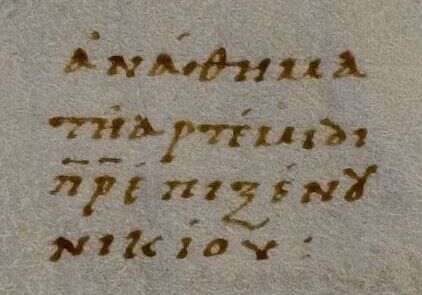 ἀνάθημα
τῆ ἀρτέμιδι
π̅ρ̅ ἐπιξένȣ
νικίου: